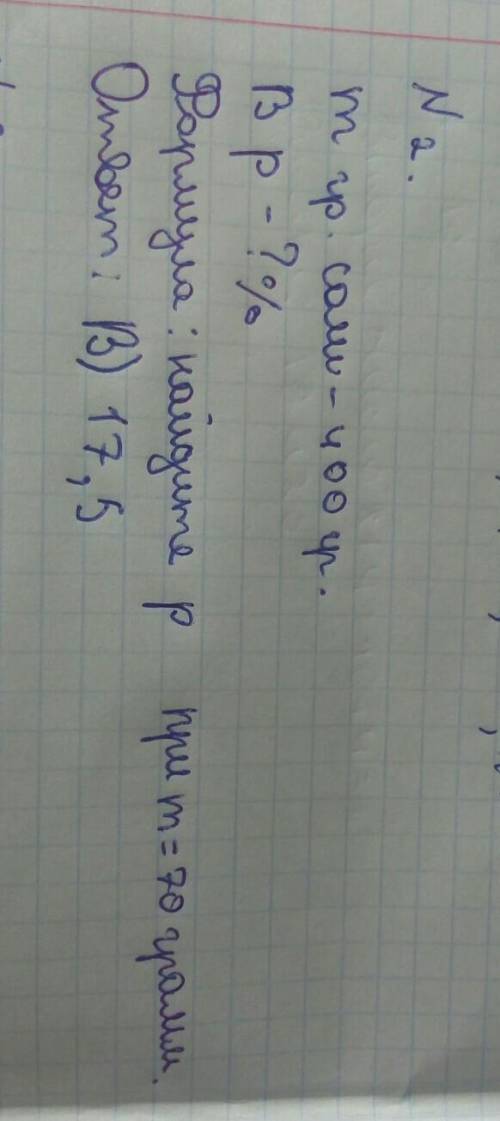 N 2.
m гр. соли - 400 гр.
В р - ? %
Формула : найдите р при m = 70 грамм.
Ответ : В) 17,5